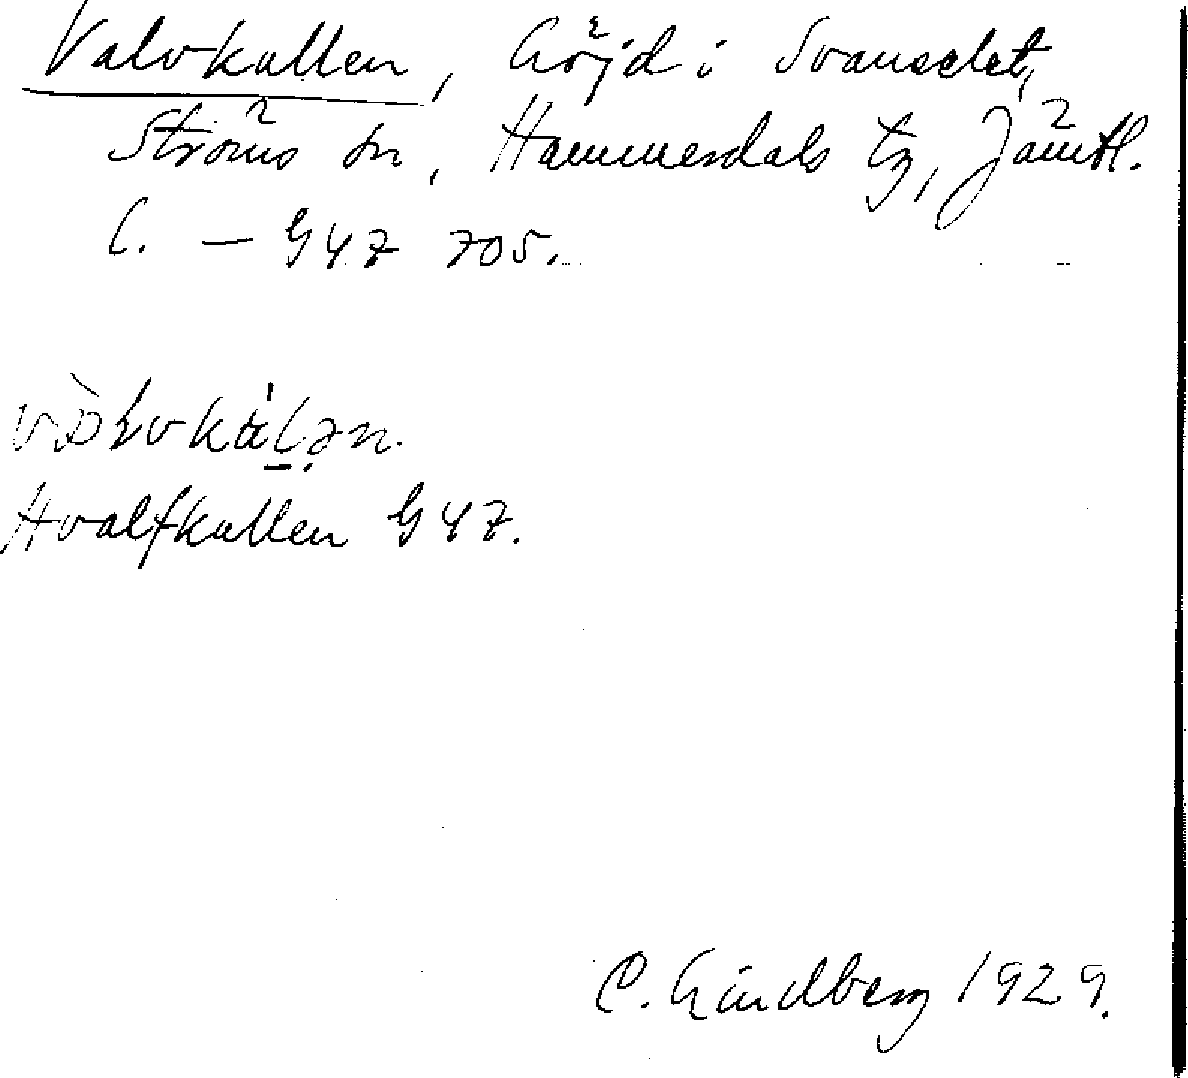 Valvkallen, höjd i Svanselet,
Ströms sn, Hammerdals tg, Jämtl.
l. — G47 705.
Hvalfkallen G47.
C. Lindberg 1929.